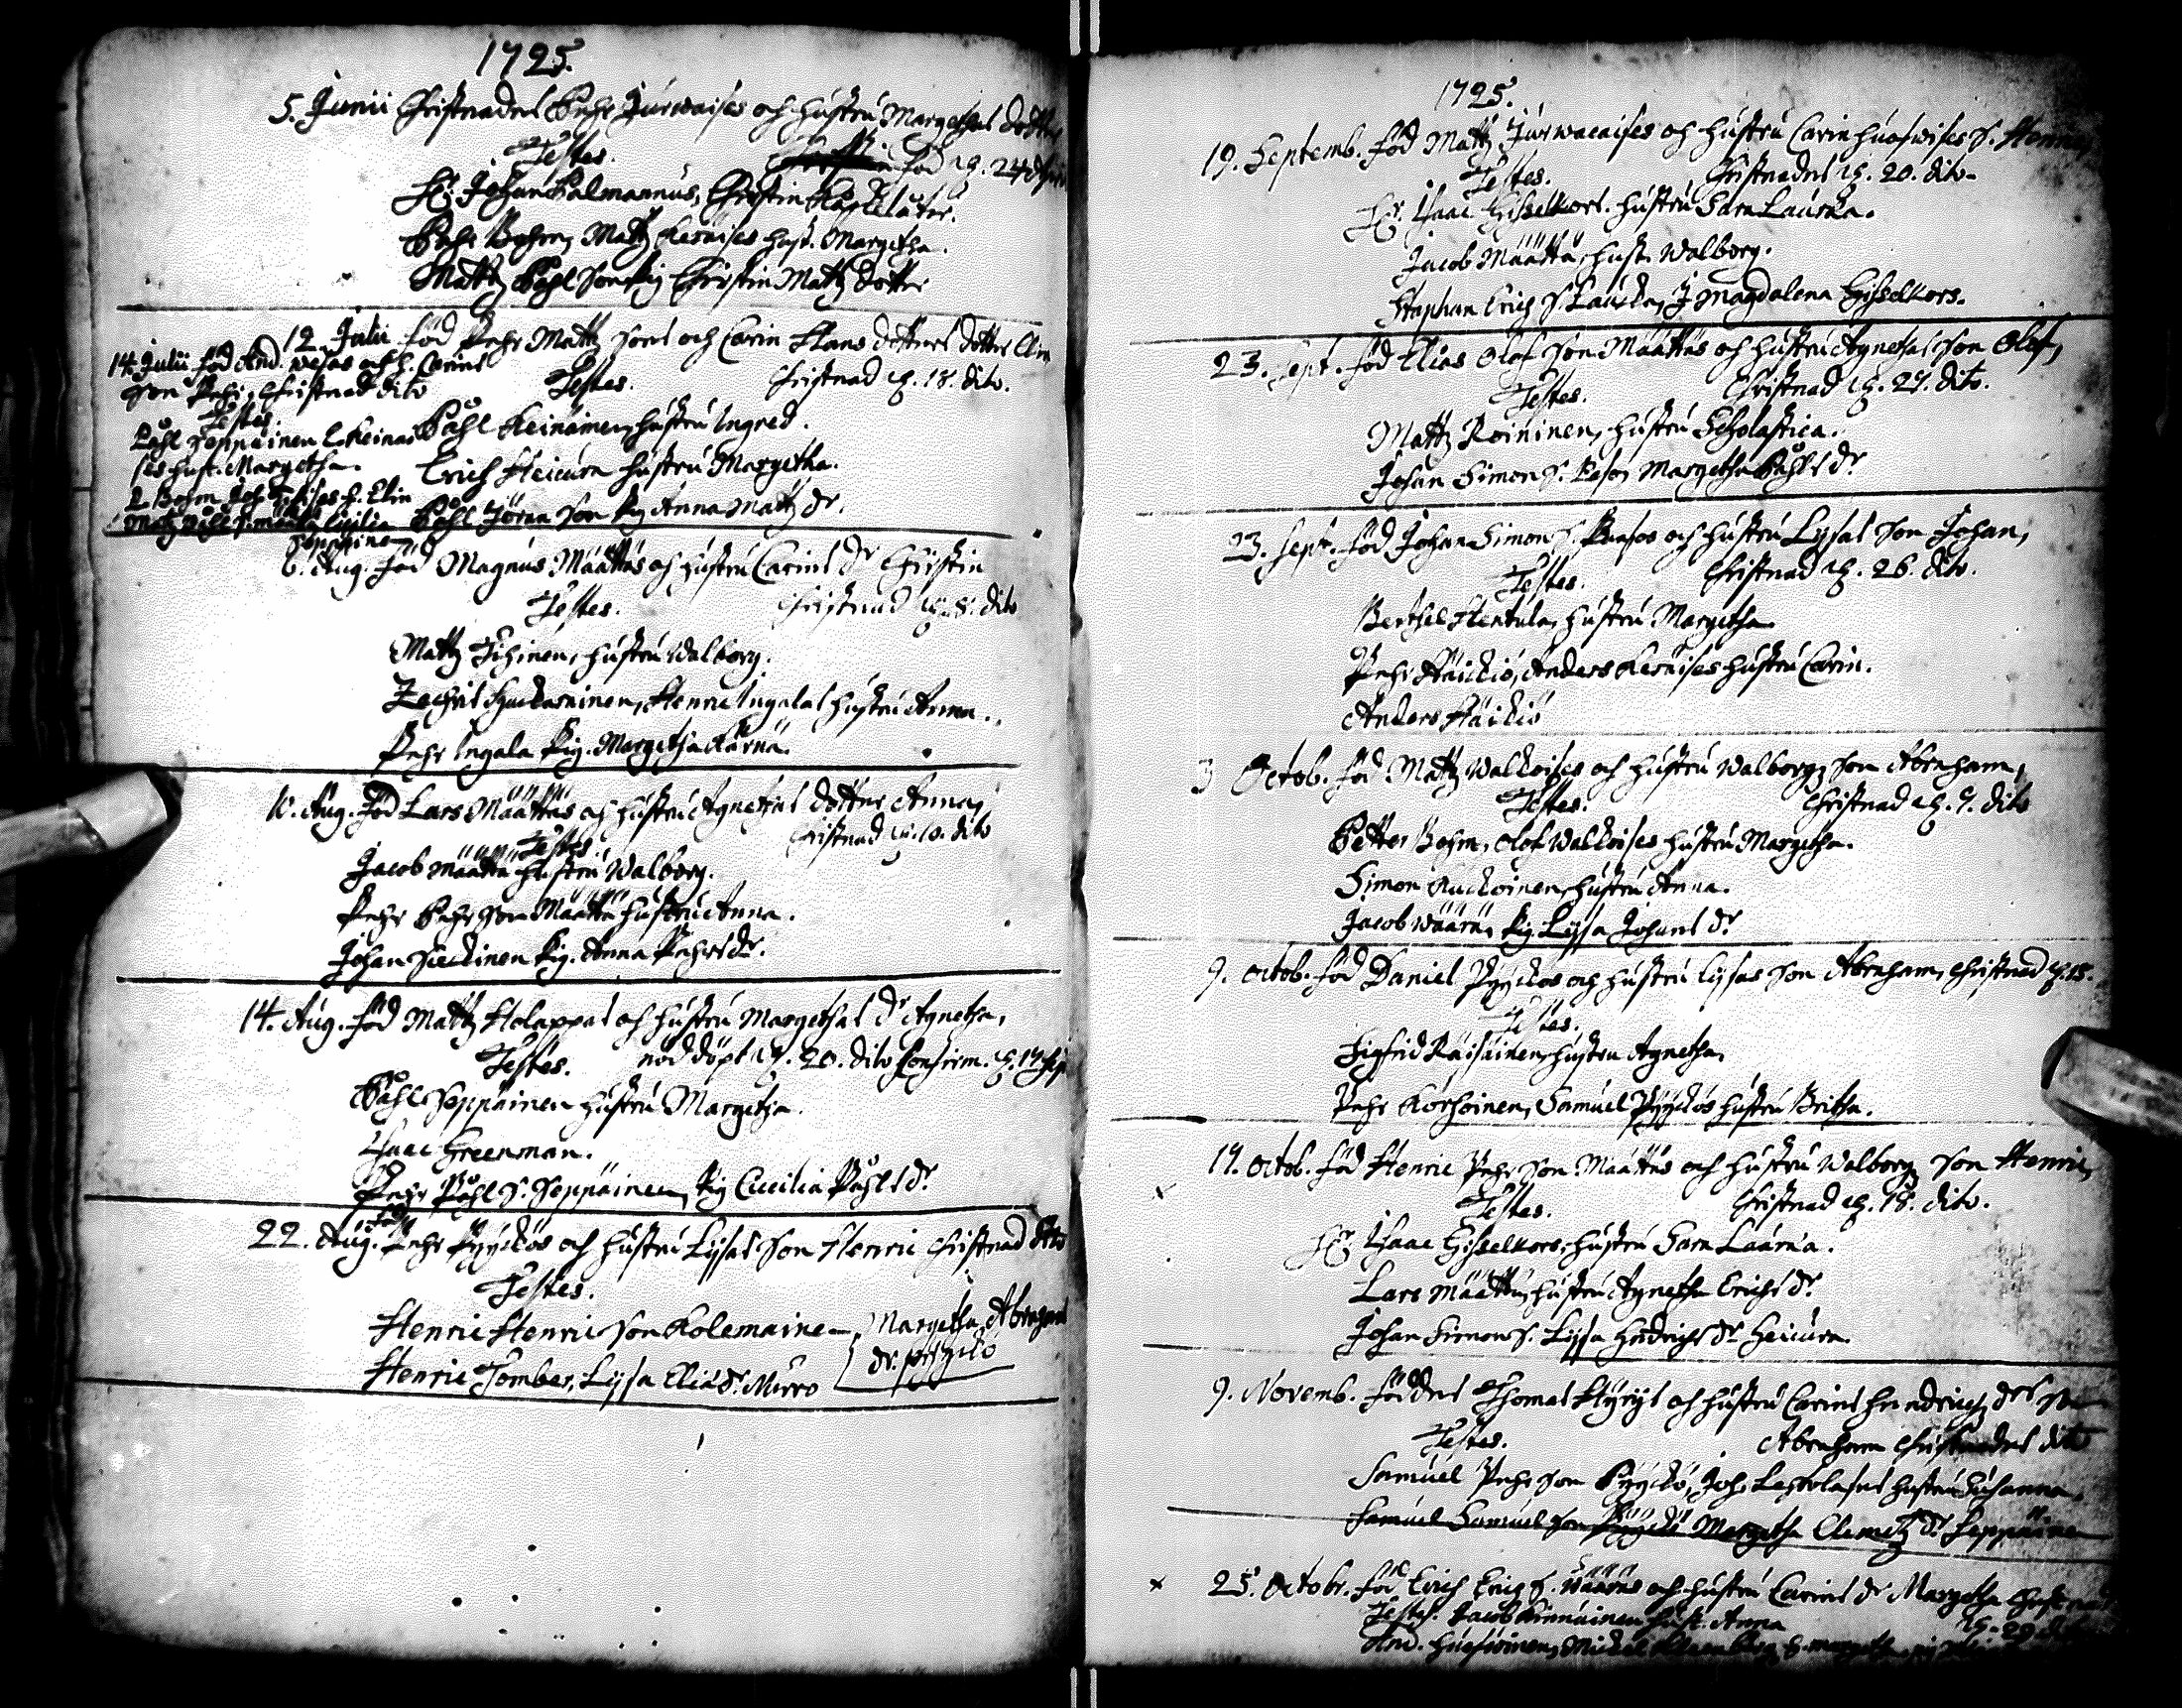 1725.
5. Junii Christnades Påhr Jurwaises och hustru Margethas dotter
Testes. född d. 24 dito
H. Johan Salmannus, Christin
Påhr Bohm, Matz Keräises hust. Margetha.
Mattz Påhl son Pig Christin Mattz dotter
12 Julii föd Pehr Mattz sons och Carin Hans dotters dotter Elin
Testes. Christnad d. 18. dito.
Påhl Keinänen, hustru Ingred.
Erich Heicura hustru Margetha.
Påhl Jöran son Pig Anna Mattz dr.
14. Julii föd And. Wesas och h. Carins
son Pehr, Christnad dito
Testes.
Påhl Seppäinen L. Keinäs
ses hust. Margetha.
P. Bohm Joh. h. Elin
Matz Påhl s. Määtta Cicilia
Seppäinen
6. Aug. föd Magnus Määttäs och hustru Carins dr Christin
Testes. Christnad d. 8. dito
Mattz Tihinen, hustru Walborg.
Zachris Huckarainen, Henric Ingalas hustru Anna.
Pehr Ingala Pig. Margetha Kärnä.
10. Aug. föd Lars Määttäs och hustru Agnethas dotter Anna,
Testes Christnad d. 10. dito
Jacob Määttä hustru Walborg.
Pehr Pehrson Määttä hustru Anna.
Johan Pig. Anna Pehrs dr.
14. Aug. föd Mattz Holappas och hustru Margethas dr Agnetha,
Testes. nöd döpt d. 20. dito Confirm. d. 17 Sept
Påhl Seppäinen hustru Margetha.
Isaac Greenman.
Pehr Påhl S. Seppäinen, Pig Cicilia Påhls dr.
22. Aug. föd Pehr Pyyckös och hustru Lysas son Henric Christnad dito
Testes.
Henric Henric son Kolemainen, Margetha Abrahams
Henric Tomber, Lysa Elias dr. Mirro dr. Pyyckö
1725.
19. Septemb. föd Mattz Jurwaises och hustru Carin Huofwises S. Henric
Testes. Christnades d. 20. dito.
H. Isaac Gisselkors. hustru Sara Laurka.
Jacob Määttä, hust. Walborg.
Stephan Erich S. Laucka, J. Magdalena Gisselkors.
23. Sept. föd Elias Olof son Määttäs och hustru Agnethas son Olof,
Testes. Christnad d. 27. dito.
Mattz Roininen, hustru Scholastica.
Johan Simon S. Paso, Margetha Påhls dr.
23. Sept. föd Johan Simon S. Pasos och hustru Lysas son Johan,
Testes. Christnad d. 26. dito.
Berthel Hentula, hustru Margetha
Pehr Häickiö, Anders Keräises hustru Carin.
Anders Häickiö
3 Octob. föd Mattz Walkoises och hustru Walborgz son Abraham,
Testes. Christnad d. 7. dito
Petter Bohm, Olof Walkoises hustru Margetha.
Simon Kuckoinen, hustru Anna.
Jacob Wäärä, Pig. Lysa Johans dr
9. Octob. föd Daniel Pyyckös och hustru Lysas son Abraham, Christnad d. 18.
Testes.
Sigfrid Räisäinen, hustru Agnetha,
Pehr Korhoinen, Samuel Pyyckös hustru Britha.
17. Octob. föd Henric Pehr son Määttäs och hustru Walborgz son Henric,
Testes. Christnad d. 18. dito.
H. Isaac Gisselkors, hustru Sara Laurka.
Lars Määttä, hustru Agnetha Erichs dr
Johan Simon S. Lysa Hindrichs dr Heicura.
9. Novemb. föddes Thomas Hyrys och hustru Carins Hendrichz drs son
Testes. Abraham Christnades dito
Samuel Pehr son Pyyckö, Joh. hustru Susanna.
Samuel Samuel son Pyyckö Margetha Clemetz dr Leppäinen
25. Octobr. föd Erich Erichz S. Wääräs och hustru Carins dr Margetha Christnad
Testes. Jacob Kinnuinen hust. Anna d. 29. dito
And. Huofwinen, Michel